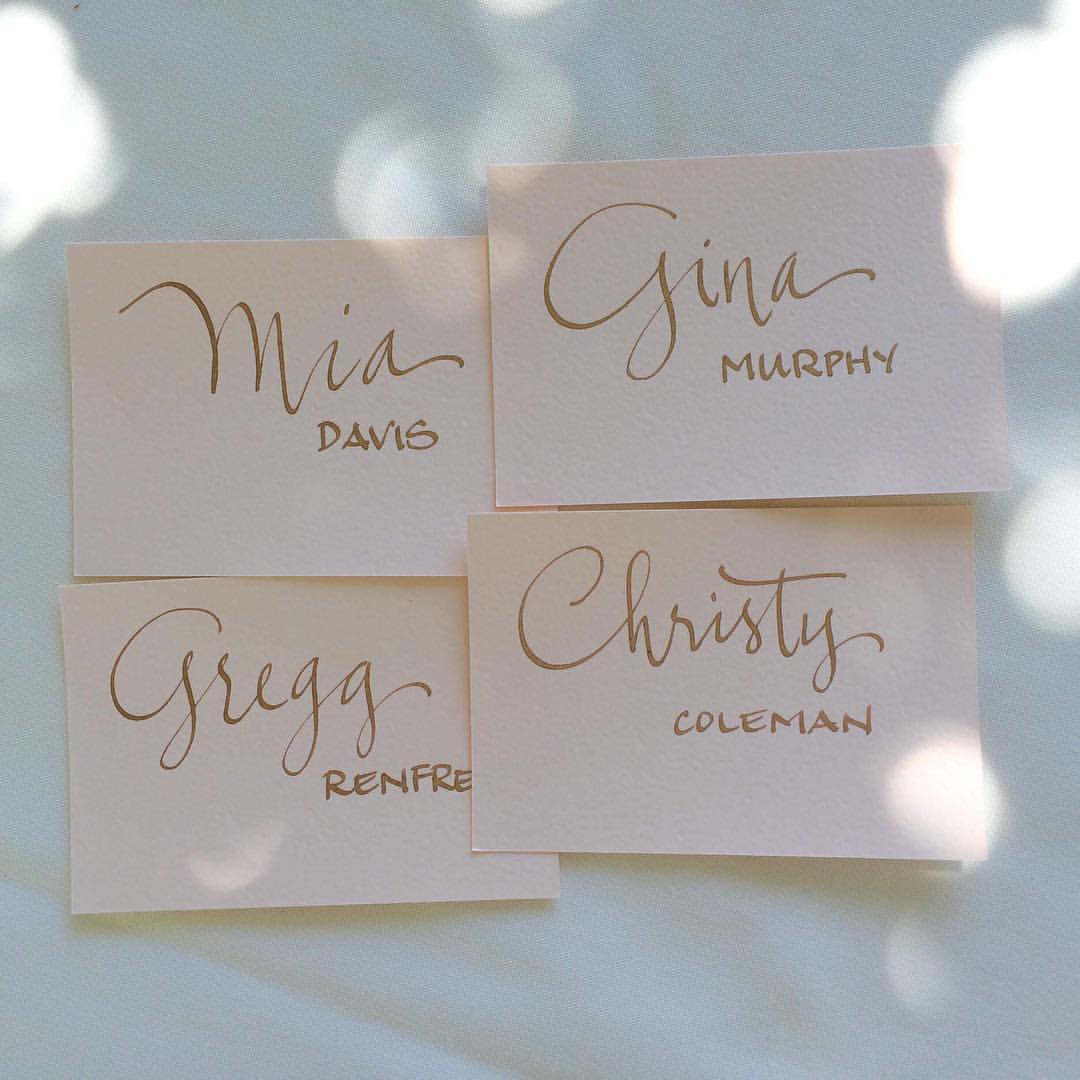 Mia
DAVIS
Gina
MURPHY
Gregg
RENFRE
Christy
COLEMAN